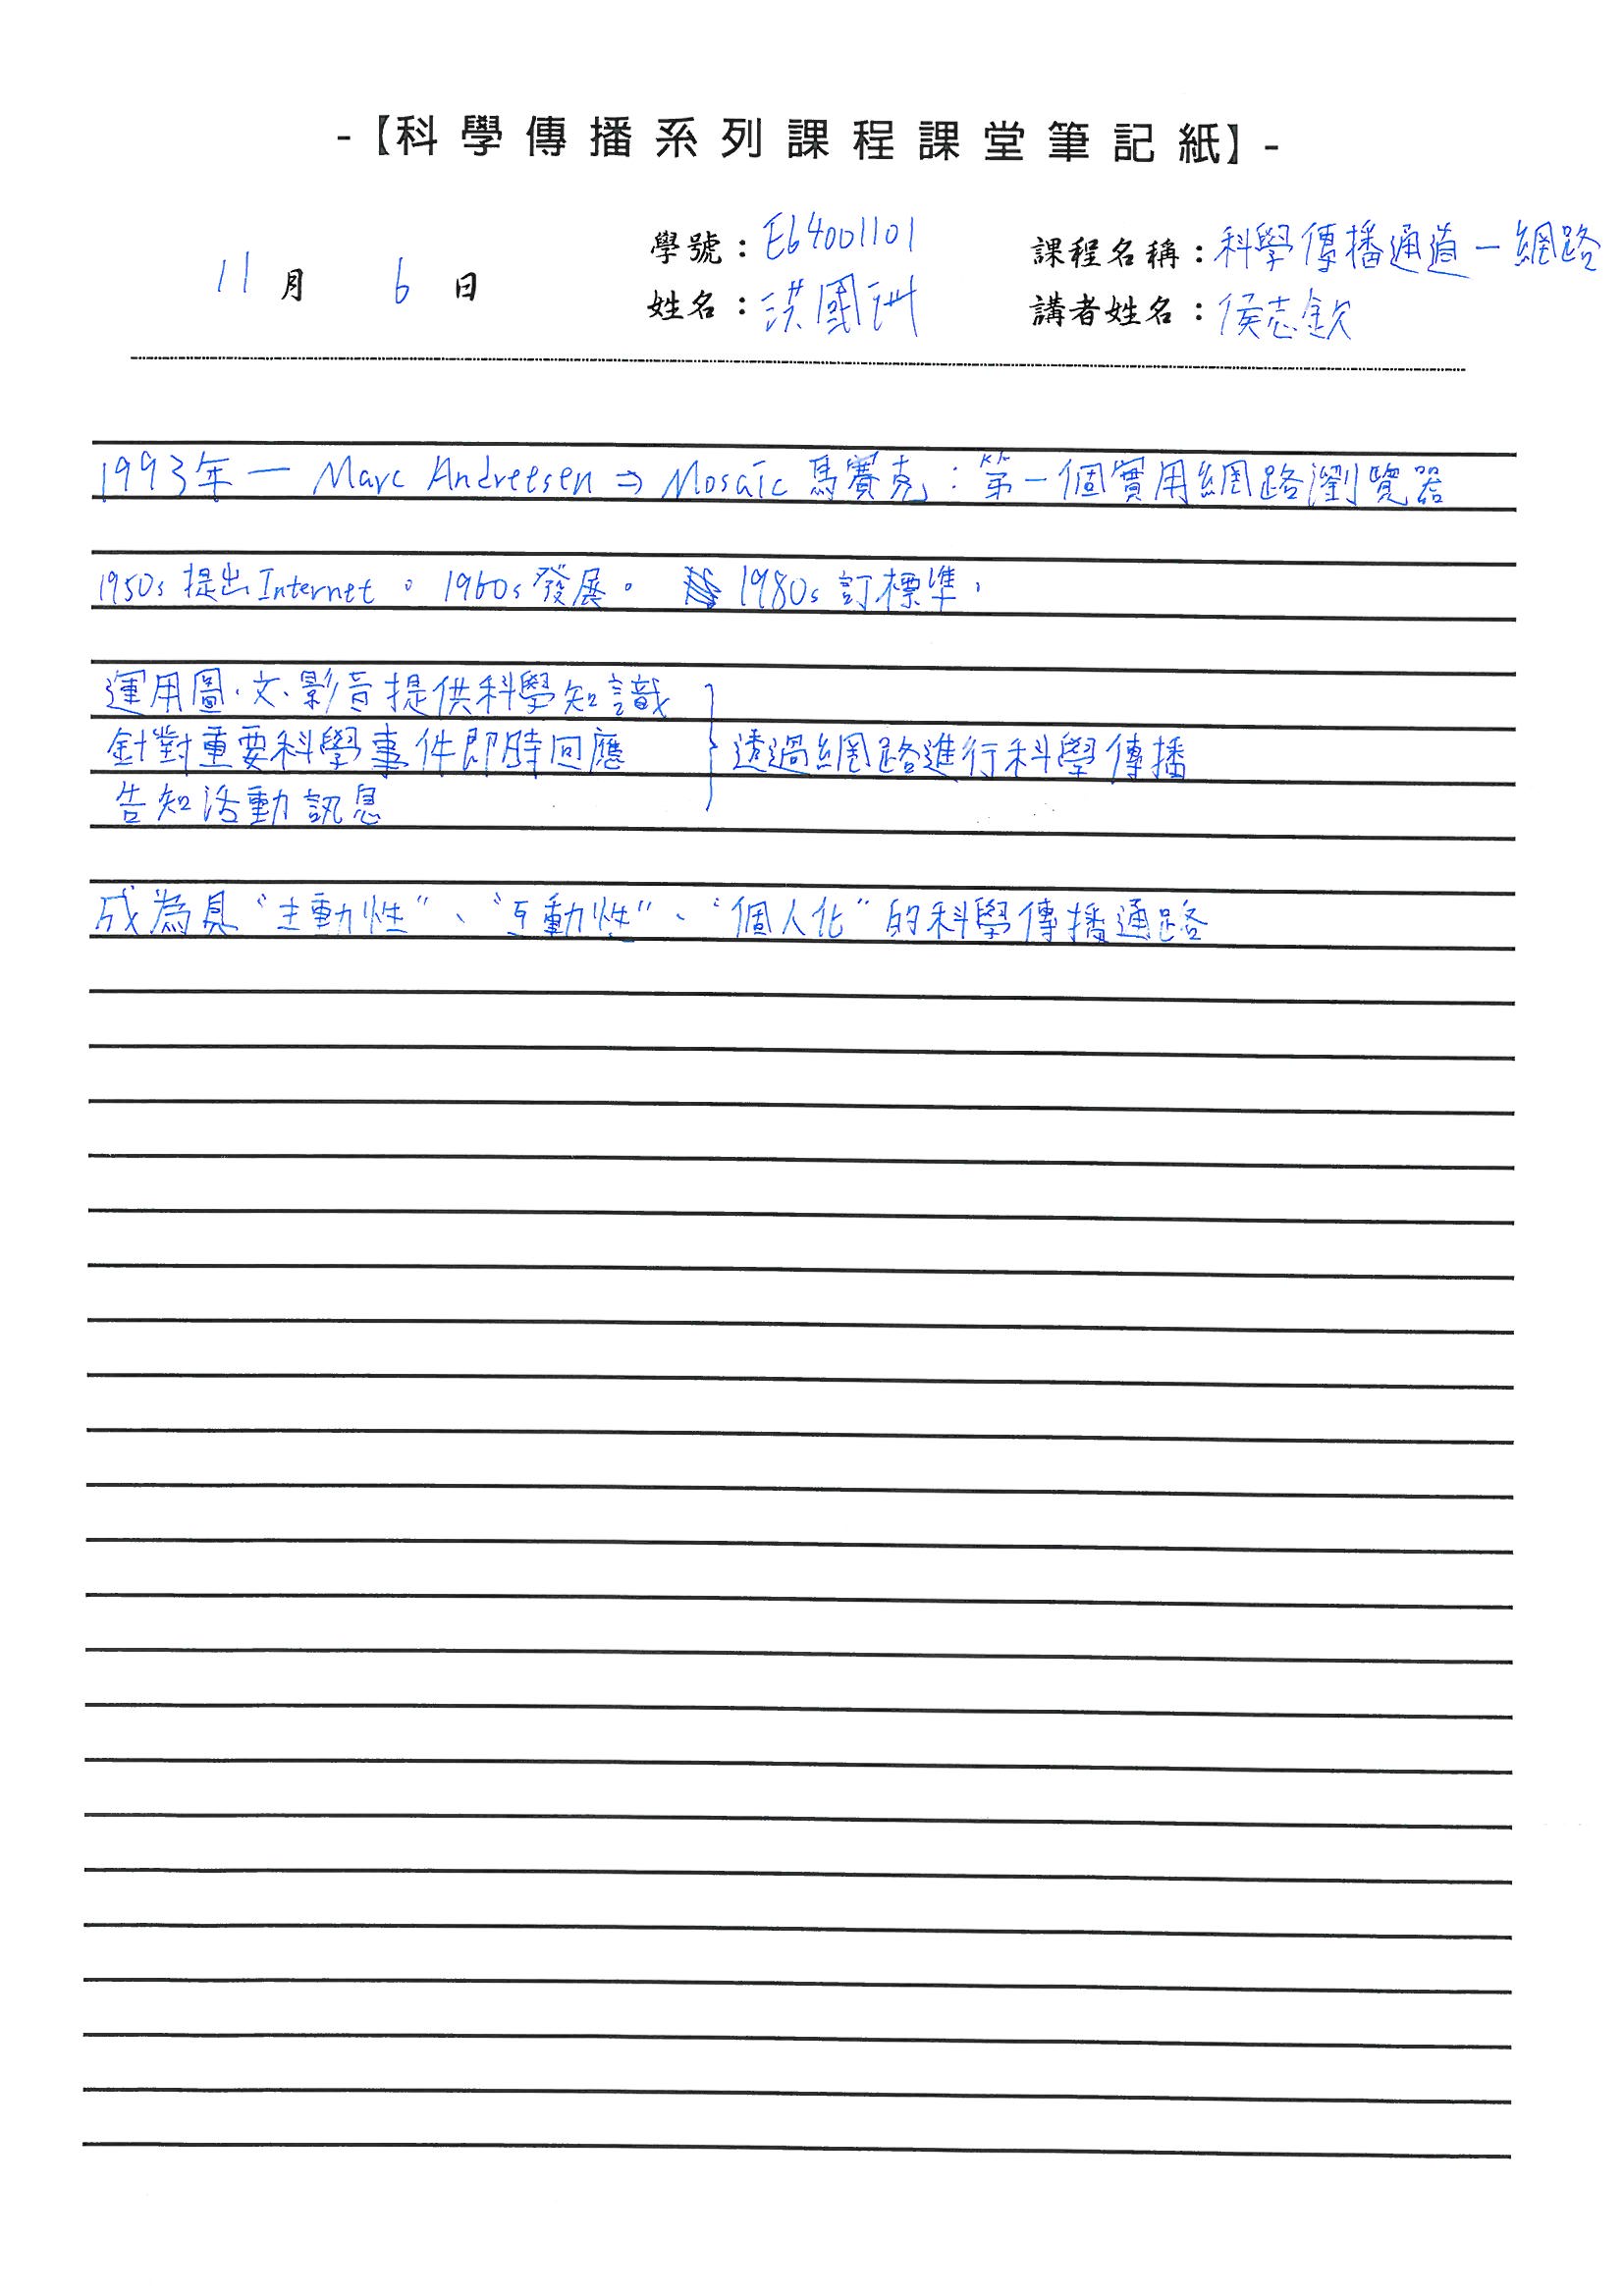 -【科學傳播系列課程課堂筆記紙】-
11月 6日
學號：E64001101
姓名：洪國洲
課程名稱：科學傳播通道－網路
講者姓名：侯志欽
1993年 — Marc Andreesen ⇒ Mosaic 馬賽克：第一個實用網路瀏覽器
1950s 提出Internet。1960s發展。 1980s 訂標準，
運用圖、文、影音提供科學知識
針對重要科學事件即時回應
告知活動訊息
} 透過網路進行科學傳播
成為具“主動性”、“互動性”、“個人化”的科學傳播通路